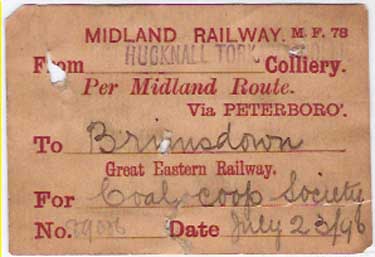 MIDLAND RAILWAY. M. F. 78
HUCKNALL TORK
From Colliery.
Per Midland Route.
Via PETERBORO'.
To Brimsdown
Great Eastern Railway.
For Coal coop Society
No. Date July 23/96